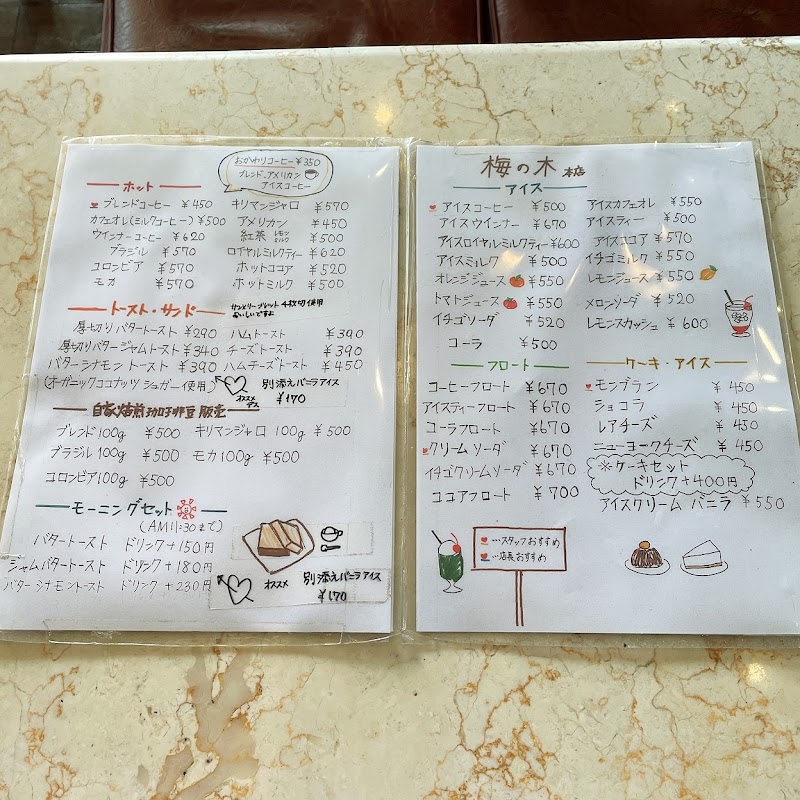 おかわりコーヒー ¥350
ブレンド、アメリカン
アイスコーヒー
ホット
ブレンドコーヒー ¥450
カフェオレ(ミルクコーヒー) ¥500
ウインナーコーヒー ¥620
ブラジル ¥570
コロンビア ¥570
モカ ¥570
キリマンジャロ ¥570
アメリカン ¥450
紅茶 レモン ミルク ¥500
ロイヤルミルクティー ¥620
ホットココア ¥520
ホットミルク ¥500
トースト・サンド
サンメリーブレット 4枚切使用
おいしいですよ
厚切りバタートースト ¥290
厚切りバタージャムトースト ¥340
バターシナモントースト ¥390
(オーガニックココナッツシュガー使用)
ハムトースト ¥390
チーズトースト ¥390
ハムチーズトースト ¥450
オススメデス
別添えバニラアイス
¥170
自家焙煎珈琲豆販売
ブレンド100g ¥500
キリマンジャロ 100g ¥500
ブラジル100g ¥500
モカ100g ¥500
コロンビア100g ¥500
モーニングセット
(AM11:30まで)
バタートースト ドリンク+150円
ジャムバタートースト ドリンク+180円
バターシナモントースト ドリンク+230円
オススメ
別添えバニラアイス
¥170
梅の木 本店
アイス
アイスコーヒー ¥500
アイスウインナー ¥670
アイスロイヤルミルクティー ¥600
アイスミルク ¥500
オレンジジュース ¥550
トマトジュース ¥550
イチゴソーダ ¥520
コーラ ¥500
アイスカフェオレ ¥550
アイスティー ¥500
アイスココア ¥570
イチゴミルク ¥550
レモンジュース ¥550
メロンソーダ ¥520
レモンスカッシュ ¥600
フロート
コーヒーフロート ¥670
アイスティーフロート ¥670
コーラフロート ¥670
クリームソーダ ¥670
イチゴクリームソーダ ¥670
ココアフロート ¥700
ケーキ・アイス
モンブラン ¥450
ショコラ ¥450
レアチーズ ¥450
ニューヨークチーズ ¥450
※ケーキセット
ドリンク+400円
アイスクリーム バニラ ¥550
…スタッフおすすめ
…店長おすすめ